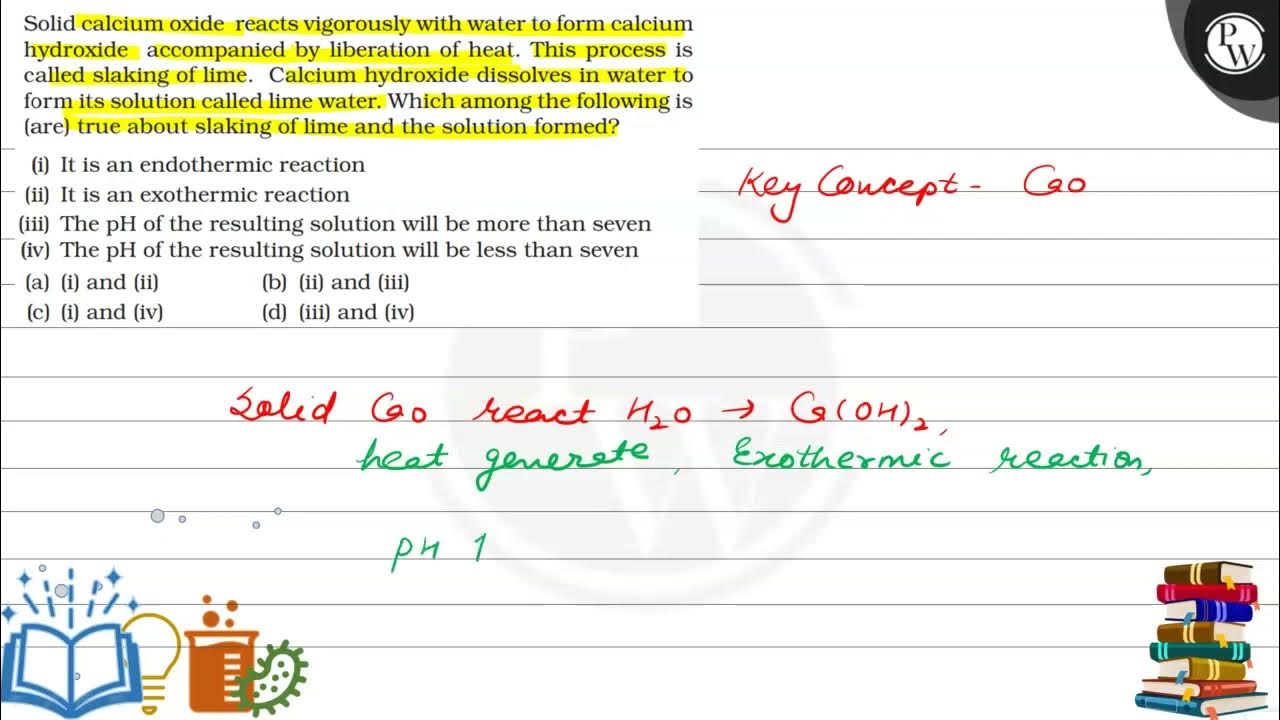 Solid calcium oxide reacts vigorously with water to form calcium
hydroxide accompanied by liberation of heat. This process is
called slaking of lime. Calcium hydroxide dissolves in water to
form its solution called lime water. Which among the following is
(are) true about slaking of lime and the solution formed?
(i) It is an endothermic reaction
(ii) It is an exothermic reaction
(iii) The pH of the resulting solution will be more than seven
(iv) The pH of the resulting solution will be less than seven
(a) (i) and (ii) (b) (ii) and (iii)
(c) (i) and (iv) (d) (iii) and (iv)
PW
Key Concept - CaO
Solid CaO react H₂O → Ca(OH)₂,
heat generate, Exothermic reaction,
pH 1